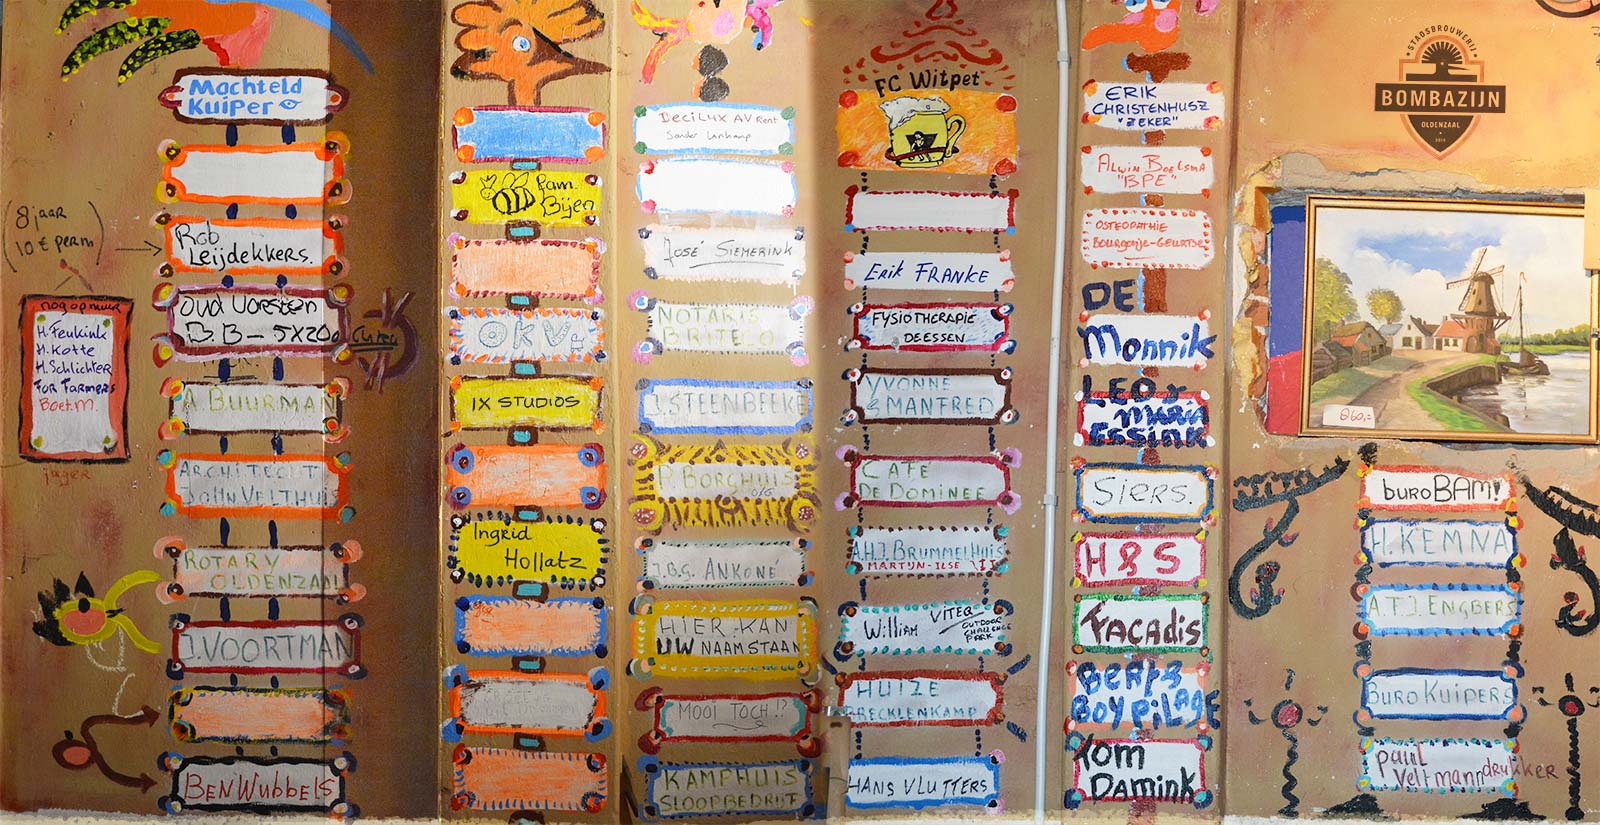 Machteld
Kuiper
8 jaar
10 € per m
Rob
Leijdekkers.
oud Vorsten
B.B - 5x200
nog op muur
H. Feukink
H. Kotte
H. Schlichter
For Farmers
Boet.m.
jager
A. BUURMAN
ARCHITECT
JOHN VELTHUIS
ROTARY
OLDENZAAL
J. VOORTMAN
BEN Wubbels
Fam.
Bijen
OKV.
IX STUDIOS
Ingrid
Hollatz
DeciLux AV Rent
Sander
JOSÉ SIEMERINK
NOTARIS
BRITELO
J. STEENBEEKE
P. BORGHUIS
O/G
J.B.G. ANKONÉ
HIER KAN
UW NAAM STAAN
MOOI TOCH!?
KAMPHUIS
SLOOPBEDRIJF
FC Witpet
Erik FRANKE
FYSIOTHERAPIE
DEESSEN
YVONNE
& MANFRED
CAFÉ
DE DOMINEE
A.H.J. BRUMMELHUIS
MARTIJN-ILSE
William VITEQ
OUTDOOR
CHALLENGE
PARK
HUIZE
BRECKLENKAMP
HANS VLUTTERS
ERIK
CHRISTENHUSZ
"ZEKER"
ALWIN BOELSMA
"BPE"
OSTEOPATHIE
BOURGONJE-GEURTSE
DE
Monnik
LEO &
MARIA
ESSINK
SIERS.
H & S
FACADIS
BERT &
BOY PILAGE
TOM
DAMINK
STADSBROUWERIJ
BOMBAZIJN
OLDENZAAL
860,=
buro BAM!
H. KEMNA
A.T.J. ENGBERS
BURO KUIPERS
paul
Veltmann drukker